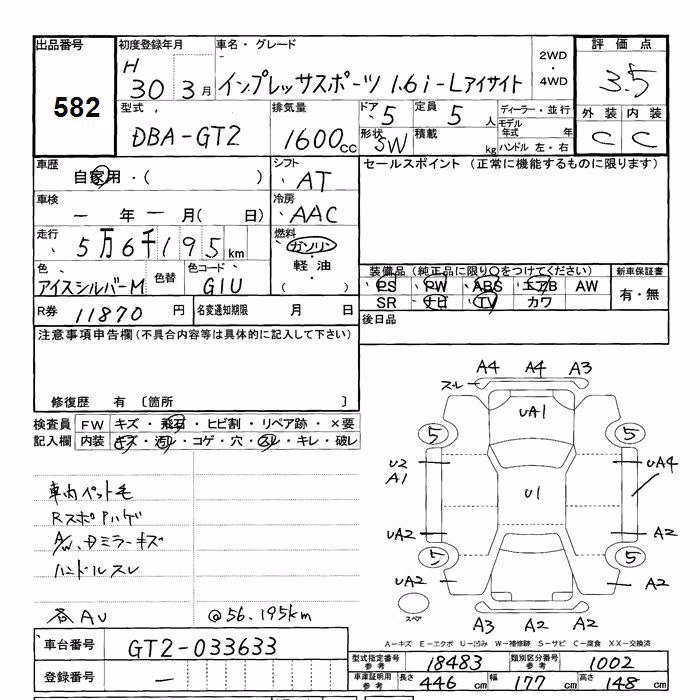 出品番号
582
初度登録年月
H 30 3月
車名・グレード
インプレッサスポーツ 1.6i-Lアイサイト
2WD
・
4WD
評価点
3.5
外装 内装
C C
型式
DBA-GT2
排気量
1600cc
ドア 5
定員 5人
形状 SW
積載 kg
ディーラー・並行
モデル年式 年
ハンドル 左・右
車歴
自家用・( )
シフト
AT
車検
ー年ー月( 日)
冷房
AAC
走行
5万6千195km
燃料
ガソリン
・
軽油
( )
色
アイスシルバーM
色替
色コード
G1U
R券 11870円
名変通知期限 月 日
セールスポイント (正常に機能するものに限ります)
装備品 (純正品に限り○をつけてください)
PS PW ABS エアB AW
SR ナビ TV カワ
新車保証書
有・無
後日品
注意事項申告欄(不具合内容等は具体的に記入して下さい)
修復歴 有 〔箇所 〕
検査員記入欄
FW キズ・飛石・ヒビ割・リペア跡・×要
内装 キズ・汚レ・コゲ・穴・スレ・キレ・破レ
車内ペット毛
RスポAハゲ
A/W、Dミラーキズ
ハンドルスレ
各AU
@56.195km
A4 A4 A3
スレ
UA1
5 5
U2
A1
UA4
U1
UA2 A2
5 5
UA2 A2
スペア
A3 A2 A2
A－キズ E－エクボ U－凹み W－補修跡 S－サビ C－腐食 XX－交換済
車台番号 GT2-033633
登録番号 ー
型式指定番号参考 18483
類別区分番号参考 1002
車庫証明用参考 長さ 446cm 幅 177cm 高さ 148cm